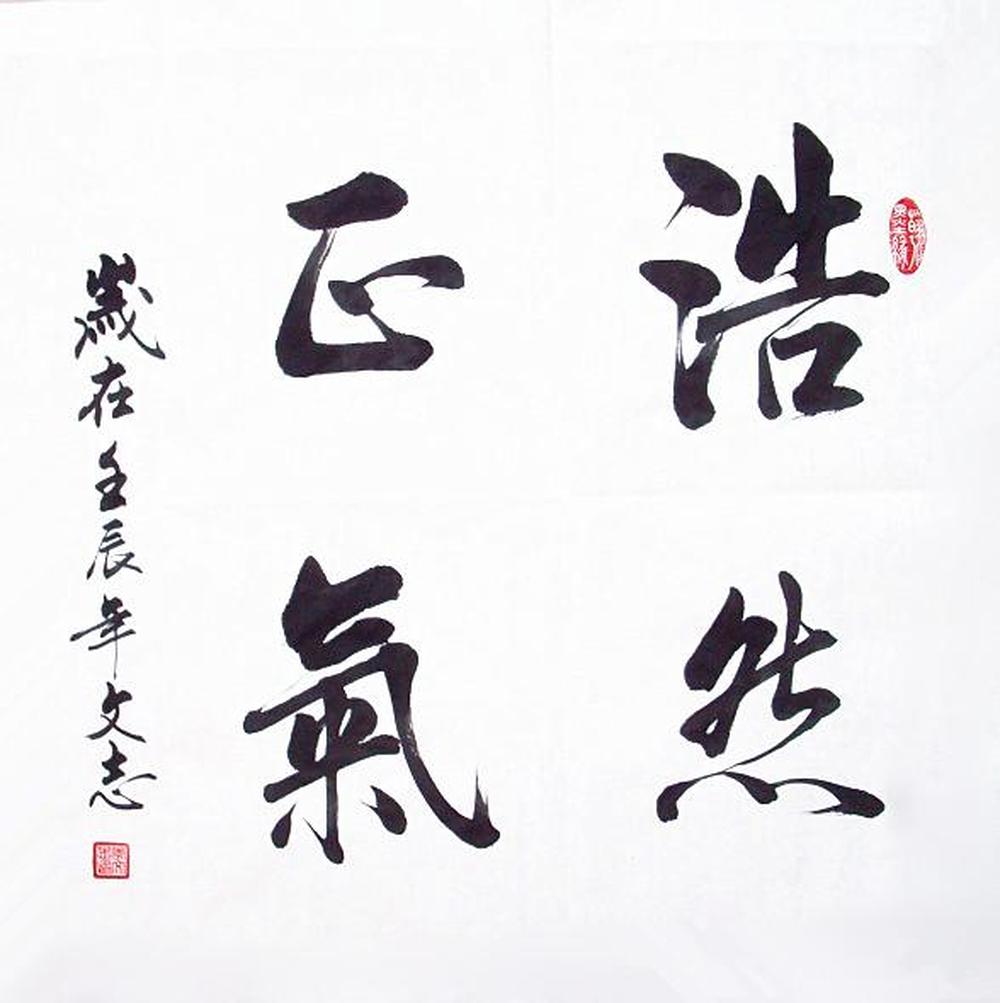 浩然
正氣
歲在壬辰年文志